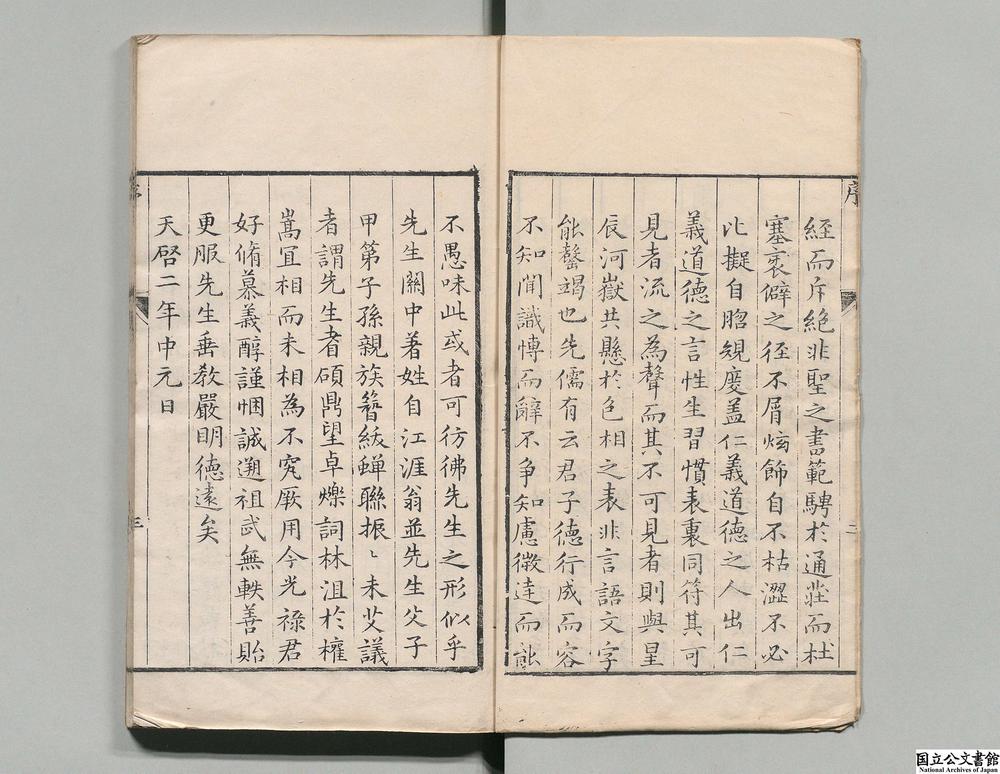 序
經而斥絕非聖之書範騁於通莊而杜
塞衺僻之徑不屑炫飾自不枯澀不必
比擬自脗䂓度盖仁義道德之人出仁
義道德之言性生習慣表裏同符其可
見者流之為聲而其不可見者則與星
辰河嶽共懸於色相之表非言語文字
能罄竭也先儒有云君子德行成而容
不知聞識愽而辭不争知慮微逹而能
二
不愚味此或者可彷彿先生之形似乎
先生關中著姓自江涯翁並先生父子
甲第子孫親族簪紱蟬聯振〻未艾議
者謂先生耆碩鼎望卓爍詞林沮於權
嵩冝相而未相為不究厥用今光祿君
好脩慕義醇謹悃誠遡祖武無軼善貽
更服先生垂教嚴明德遠矣
天啓二年中元日
序
三
国立公文書館
National Archives of Japan